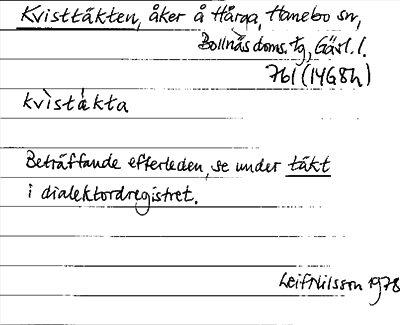 Kvisttäkten, åker å Hårga, Hanebo sn,
Bollnäs doms. tg, Gävl. l.
76l (14G8h)
kvìstákta
Beträffande efterleden, se under täkt
i dialektordregistret.
Leif Nilsson 1978